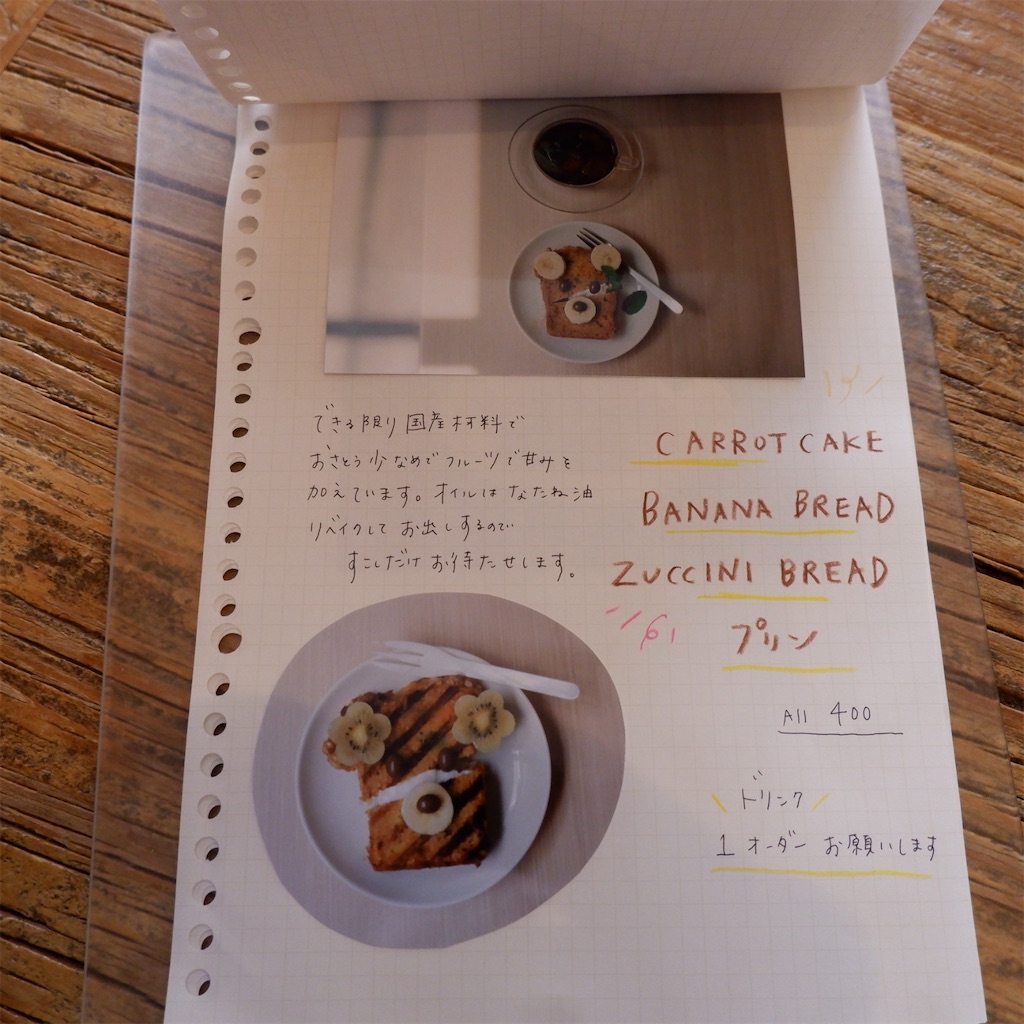 できる限り国産材料で
おさとう少なめでフルーツで甘みを
加えています。オイルはなたね油
リベイクしてお出しするので
すこしだけお待たせします。
CARROT CAKE
BANANA BREAD
ZUCCINI BREAD
プリン
All 400
ドリンク
1 オーダー お願いします